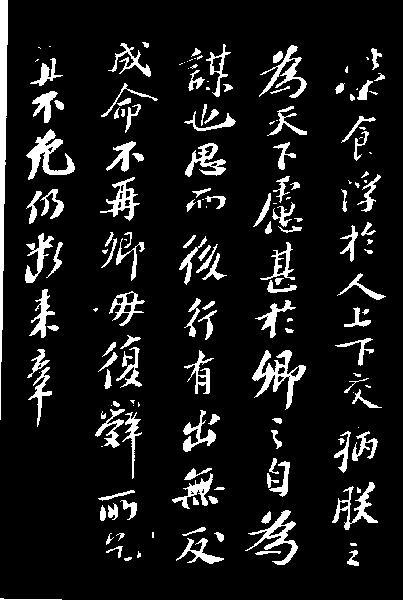 食浮於人上下交病朕之
為天下慮甚於卿之自為
謀也思而後行有出無反
成命不再卿毋復辭所乞
宜不允仍断来章